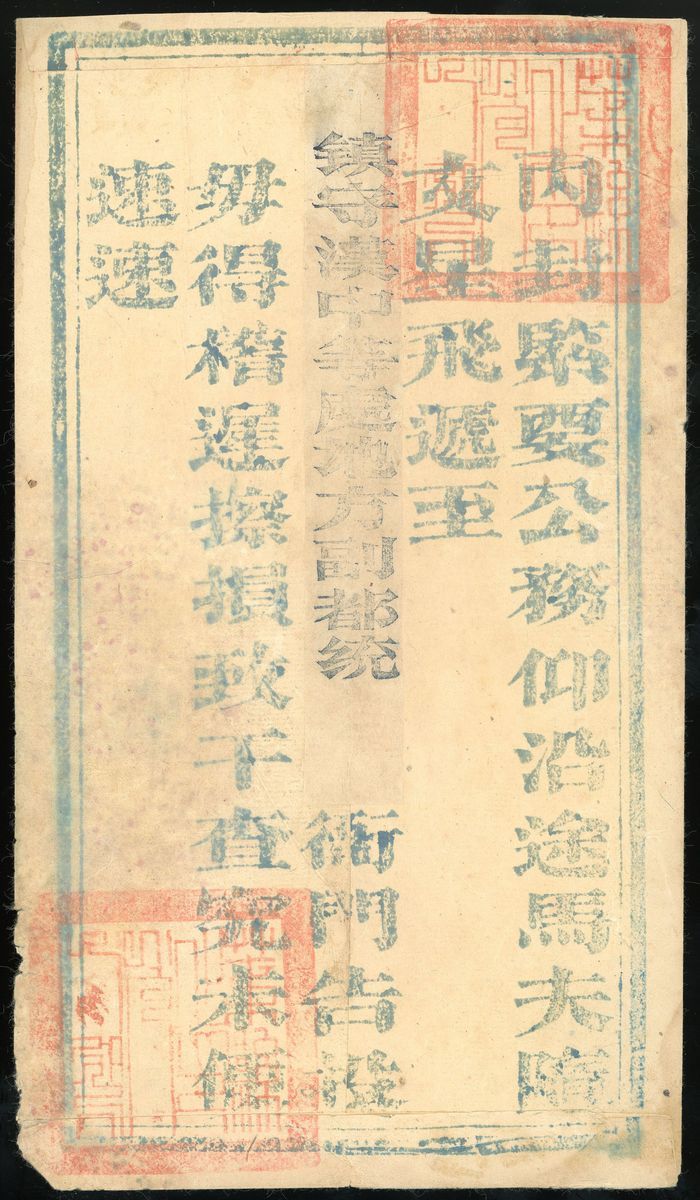 內封緊要公務仰沿途馬夫隨
文星飛遞至
鎮守漢中等處地方副都統衙門告投
毋得稽遲擦損致干查究未便
速速